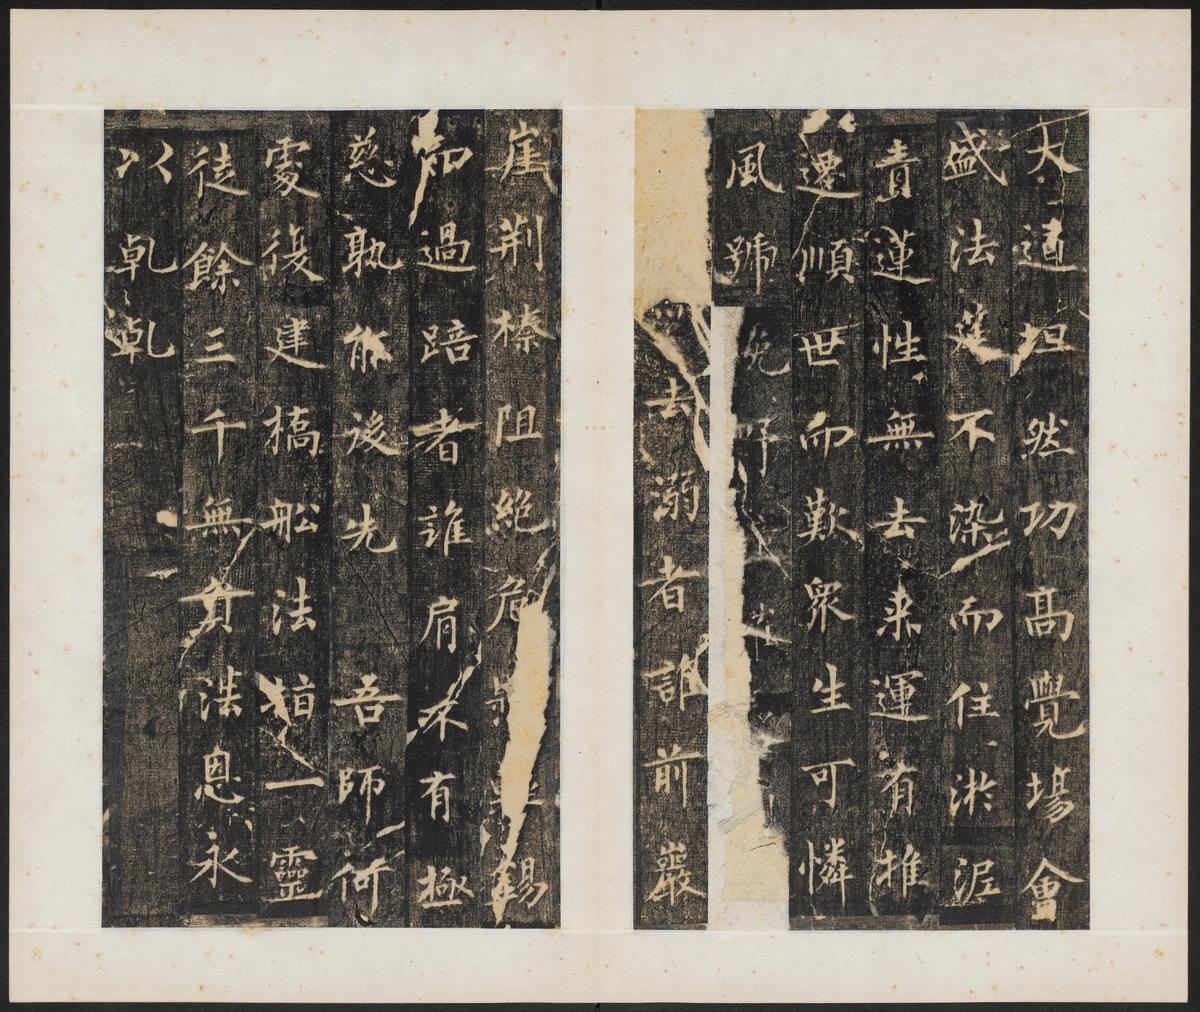 大道坦然功高覺場會
盛法筵不染而住淤泥
青蓮性無去来運有推
遷順世而歎衆生可憐
風號
去溺者誰前巖
崖荆榛阻絶危
錫
知過踣者誰肩来有極
慈孰能後先 吾師何
處復建橋舩法指一靈
徒餘三千無負法恩永
以乹乹